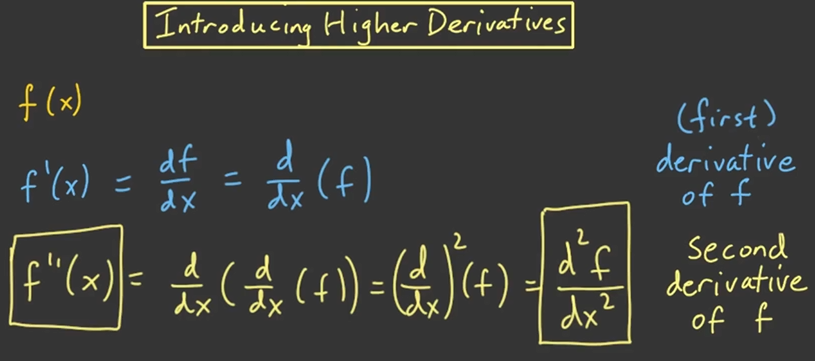 Introducing Higher Derivatives
f(x)
f'(x) = df/dx = d/dx (f)
(first)
derivative
of f
f''(x) = d/dx (d/dx (f)) = (d/dx)²(f) = d²f/dx²
second
derivative
of f